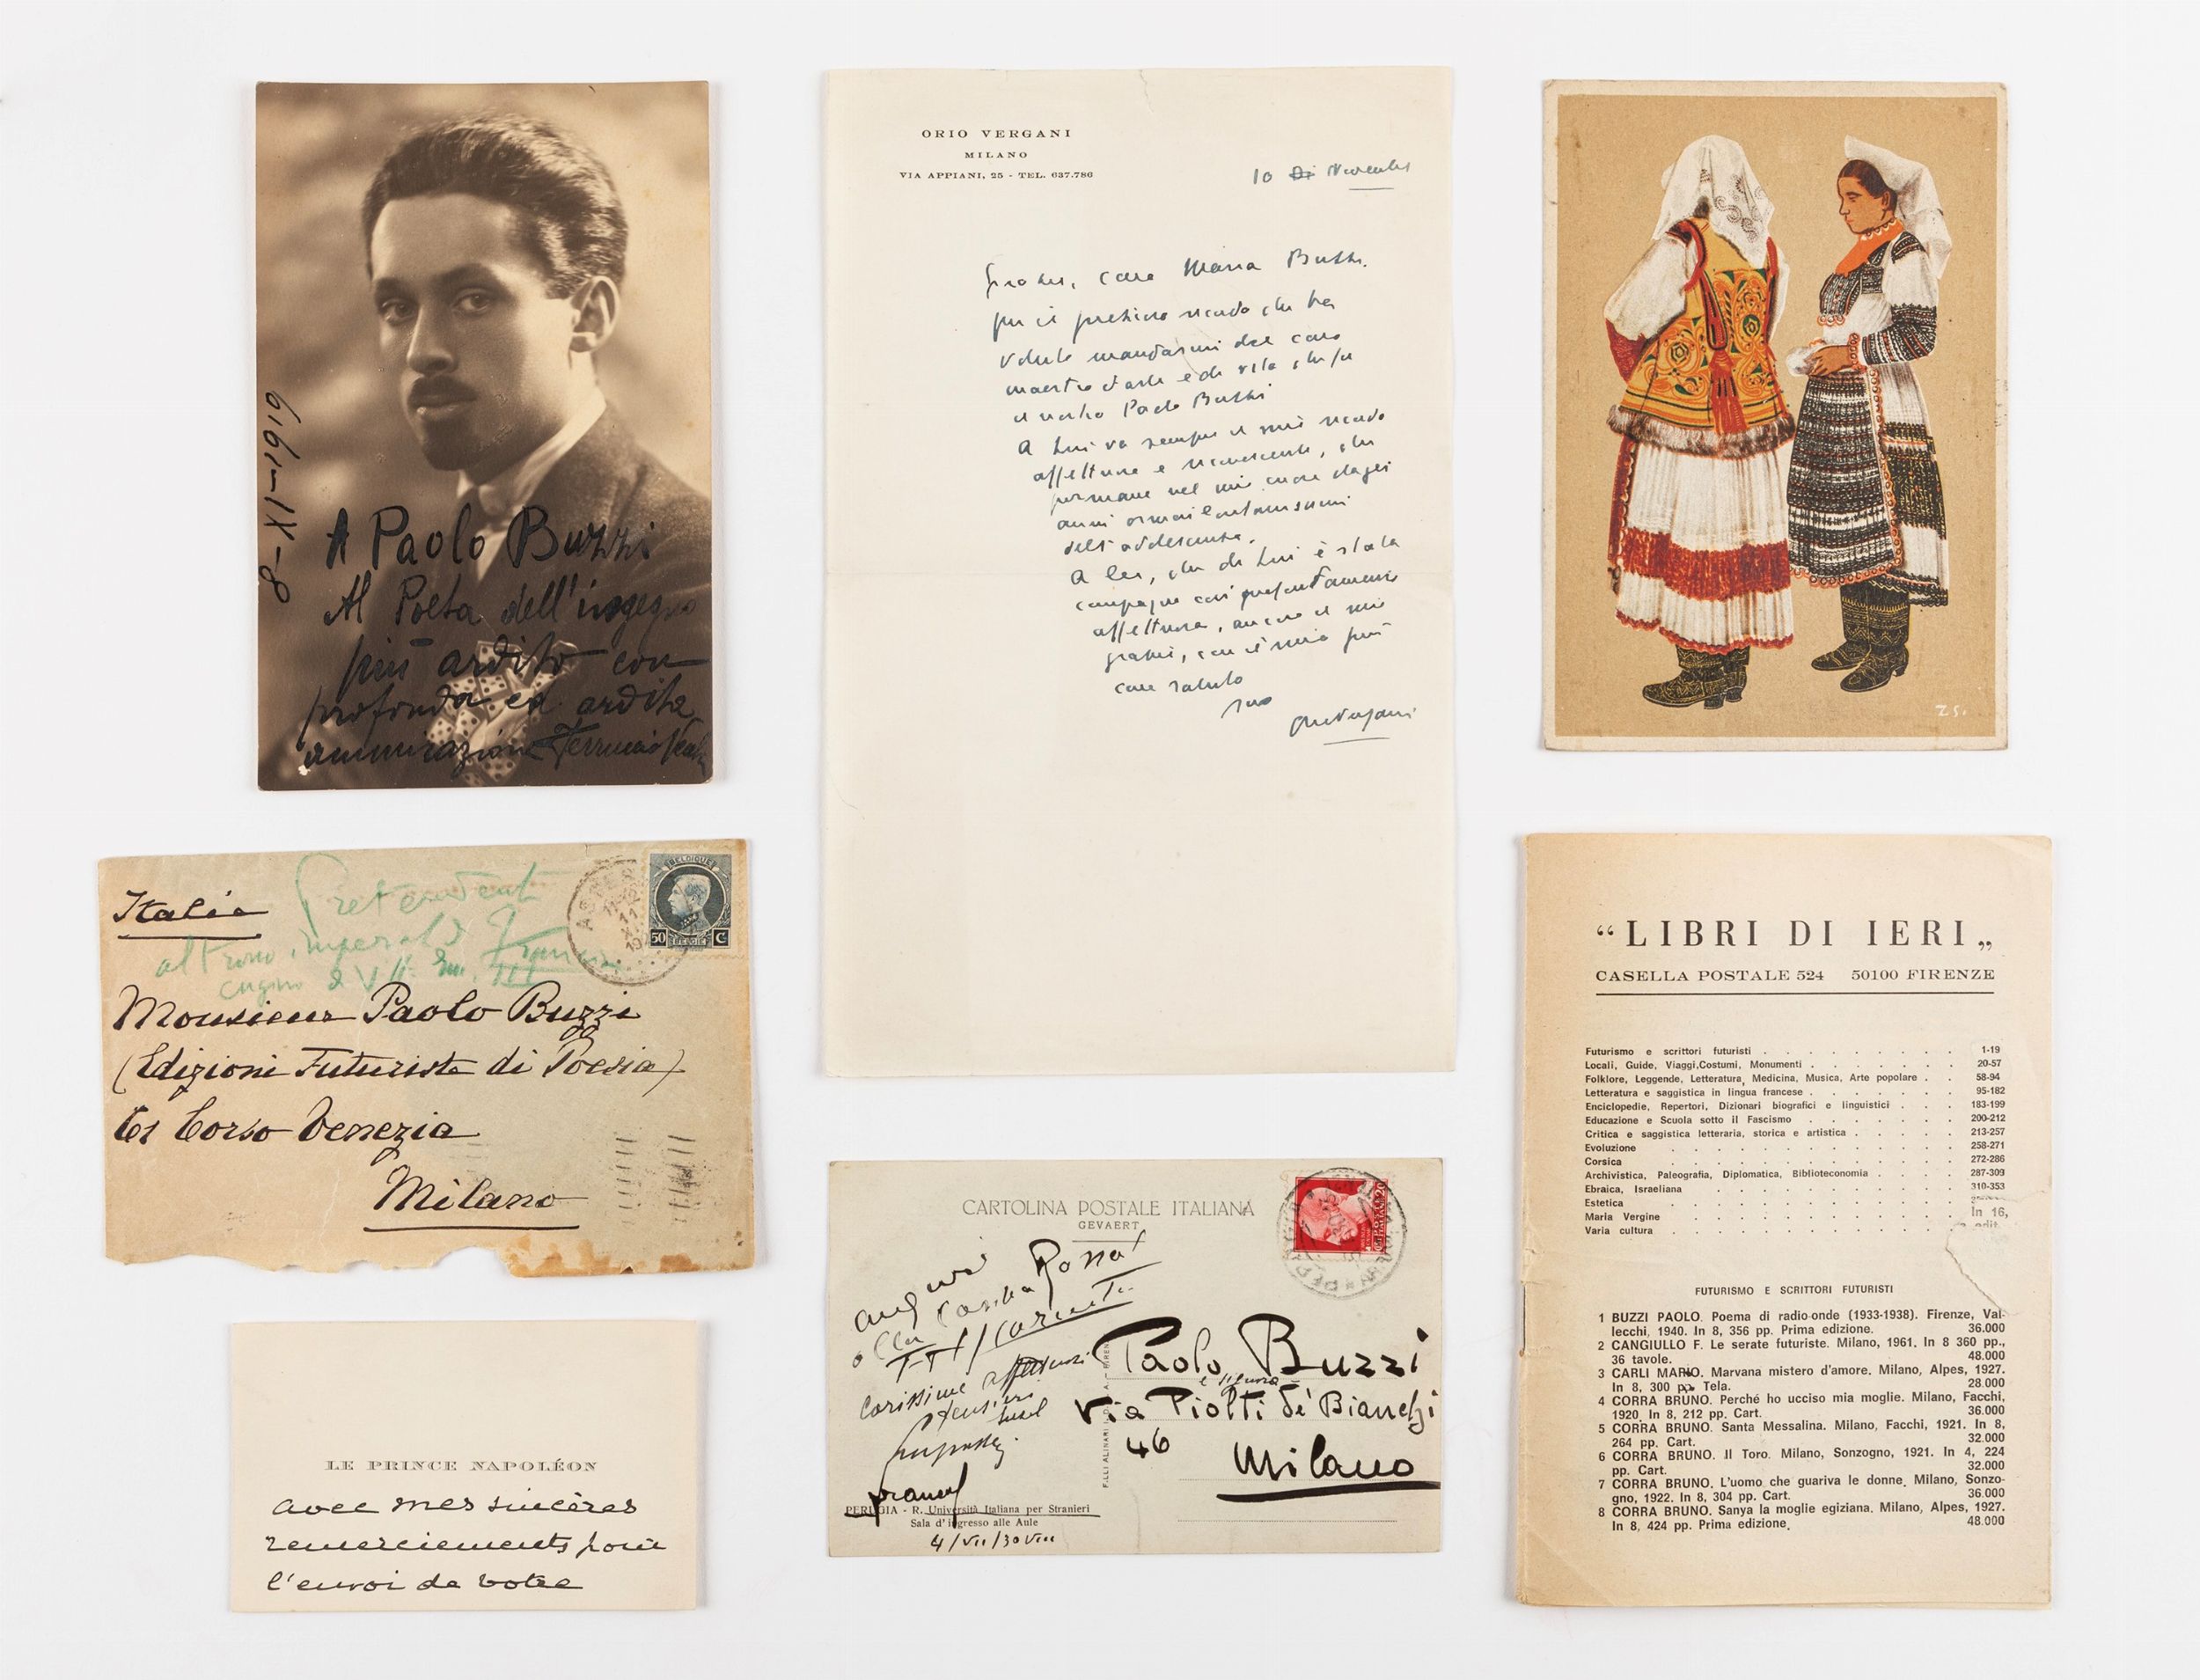 8-XI-1919
A Paolo Buzzi
Al Poeta dell'ingegno
più ardito con
profonda ed ardita
ammirazione Ferruccio
ORIO VERGANI
MILANO
VIA APPIANI, 25 - TEL. 637.786
10 Di Novembre
Grazie, cara Maria Buzzi.
per il prezioso ricordo che ha
voluto mandarmi del caro
maestro d'arte e di vita che fu
il nostro Paolo Buzzi
A Lui va sempre il mio ricordo
affettuoso e riconoscente, che
permane nel mio cuore dagli
anni ormai lontanissimi
dell'adolescenza.
A lei, che di Lui è stata
compagna così profondamente
affettuosa, ancora il mio
grazie, con il mio più
caro saluto
suo
Orio Vergani
ZS.
Italia
Pretendente
al trono imperial di Francia
cugino di V. Em. III
BELGIQUE
50 C
BELGIË
Monsieur Paolo Buzzi
(Edizioni Futuriste di Poesia)
61 Corso Venezia
Milano
LE PRINCE NAPOLÉON
avec mes sincères
remerciements pour
l'envoi de votre
CARTOLINA POSTALE ITALIANA
GEVAERT
auguri
alla Casina Rossa!
F T Marinetti
Carissime affettuosi
pensieri
Paolo Buzzi
e signora
Via Piolti de' Bianchi
46
Milano
PERUGIA - R. Università Italiana per Stranieri
Sala d'ingresso alle Aule
4/VII/30 VIII
“LIBRI DI IERI„
CASELLA POSTALE 524 50100 FIRENZE
Futurismo e scrittori futuristi . . . . . . . 1-19
Locali, Guide, Viaggi,Costumi, Monumenti . . . . . . 20-57
Folklore, Leggende, Letteratura, Medicina, Musica, Arte popolare . . 58-94
Letteratura e saggistica in lingua francese . . . . . . 95-182
Enciclopedie, Repertori, Dizionari biografici e linguistici . . . 183-199
Educazione e Scuola sotto il Fascismo . . . . . . 200-212
Critica e saggistica letteraria, storica e artistica . . . . . 213-257
Evoluzione . . . . . . . . . . 258-271
Corsica . . . . . . . . . . 272-286
Archivistica, Paleografia, Diplomatica, Biblioteconomia . . . . 287-309
Ebraica, Israeliana . . . . . . . . 310-353
Estetica . . . . . . . . . .
Maria Vergine . . . . . . . . . In 16,
Varia cultura . . . . . . . . . edit.
FUTURISMO E SCRITTORI FUTURISTI
1 BUZZI PAOLO. Poema di radio-onde (1933-1938). Firenze, Val-
lecchi, 1940. In 8, 356 pp. Prima edizione. 36.000
2 CANGIULLO F. Le serate futuriste. Milano, 1961. In 8 360 pp.,
36 tavole. 48.000
3 CARLI MARIO. Marvana mistero d'amore. Milano, Alpes, 1927.
In 8, 300 pp. Tela. 28.000
4 CORRA BRUNO. Perché ho ucciso mia moglie. Milano, Facchi,
1920. In 8, 212 pp. Cart. 36.000
5 CORRA BRUNO. Santa Messalina. Milano, Facchi, 1921. In 8,
264 pp. Cart. 32.000
6 CORRA BRUNO. Il Toro. Milano, Sonzogno, 1921. In 4, 224
pp. Cart. 32.000
7 CORRA BRUNO. L'uomo che guariva le donne. Milano, Sonzo-
gno, 1922. In 8, 304 pp. Cart. 36.000
8 CORRA BRUNO. Sanya la moglie egiziana. Milano, Alpes, 1927.
In 8, 424 pp. Prima edizione. 48.000